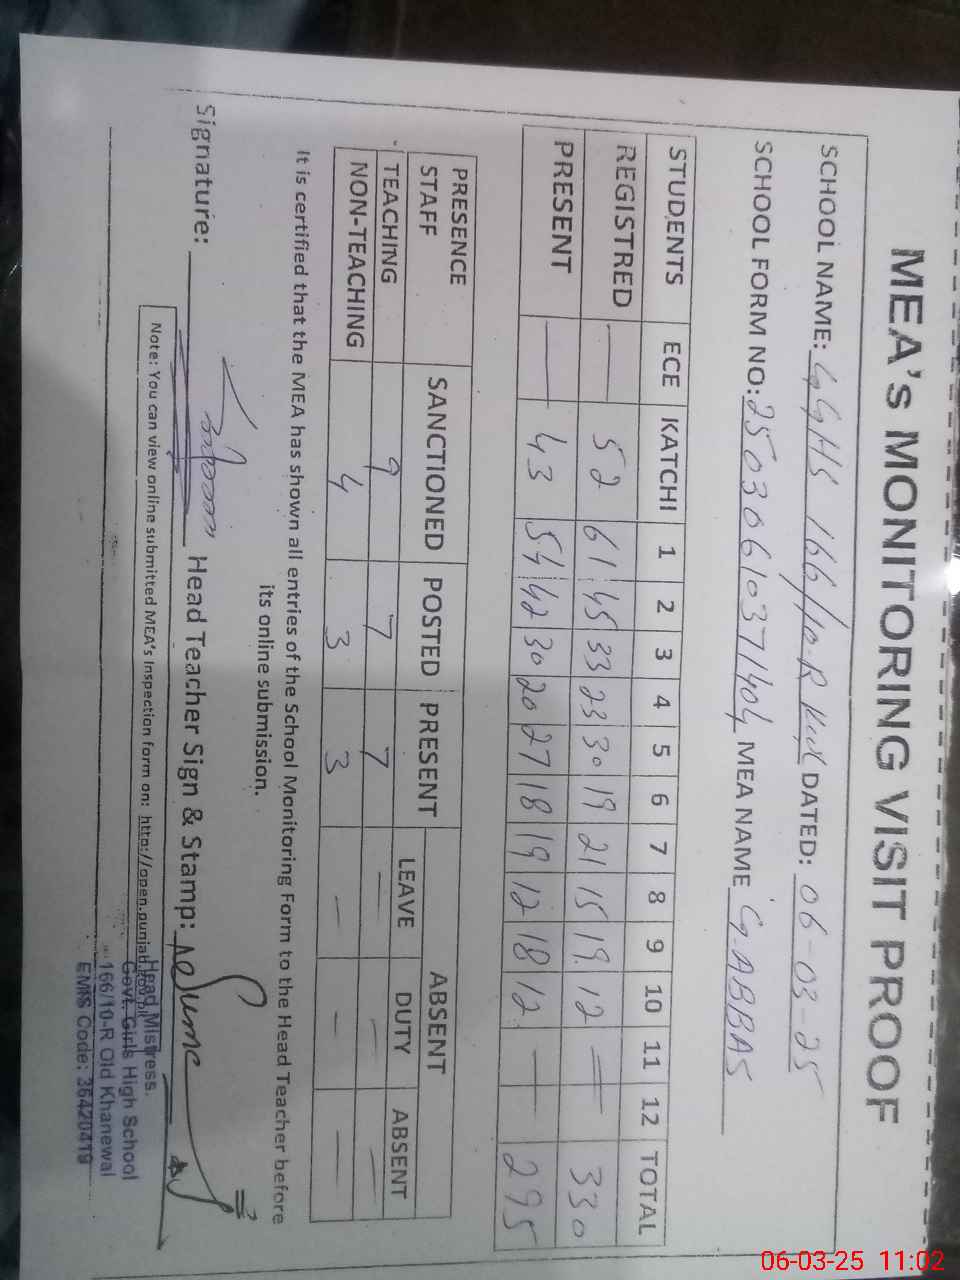 MEA's MONITORING VISIT PROOF
SCHOOL NAME: GGHS 166/10-R DATED: 06-03-25
SCHOOL FORM NO: 25030610371404 MEA NAME G.ABBAS
STUDENTS ECE KATCHI 1 2 3 4 5 6 7 8 9 10 11 12 TOTAL
REGISTRED — 52 61 45 33 23 30 19 21 15 19 12 — — 330
PRESENT — 43 54 42 30 20 27 18 19 12 18 12 — — 295
PRESENCE STAFF SANCTIONED POSTED PRESENT ABSENT
LEAVE DUTY ABSENT
TEACHING 9 7 7 — — —
NON-TEACHING 4 3 3 — — —
It is certified that the MEA has shown all entries of the School Monitoring Form to the Head Teacher before
its online submission.
Signature: Head Teacher Sign & Stamp:
Note: You can view online submitted MEA's Inspection form on: http://open.punjab.gov.pk
Head Mistress.
Govt. Girls High School
166/10-R Old Khanewal
EMIS Code: 36420419
06-03-25 11:02